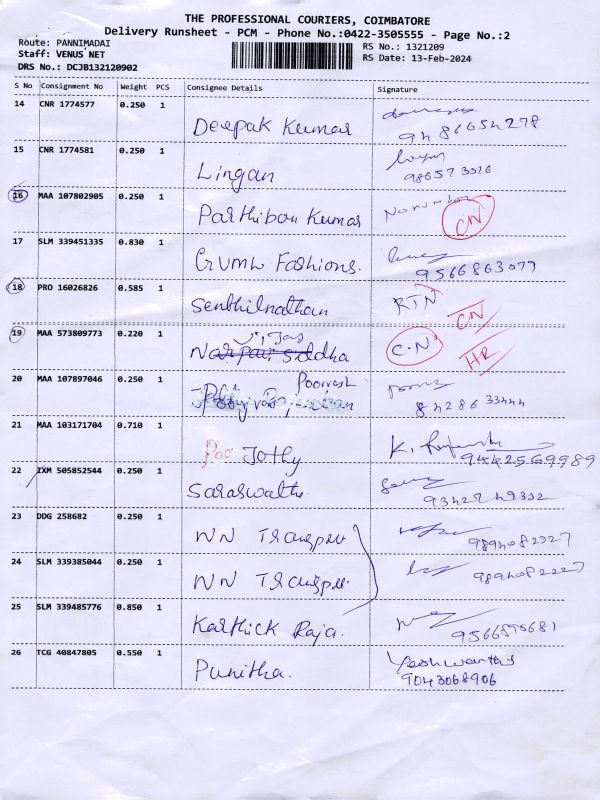 THE PROFESSIONAL COURIERS, COIMBATORE
Delivery Runsheet - PCM - Phone No.:0422-3505555 - Page No.:2
Route: PANNIMADAI
RS No.: 1321209
Staff: VENUS NET
RS Date: 13-Feb-2024
DRS No.: DCJB132120902
S No Consignment No Weight PCS Consignee Details Signature
14 CNR 1774577 0.250 1 Deepak Kumar
9486654278
15 CNR 1774581 0.250 1 Lingan
16 MAA 107802905 0.250 1 Parthiban Kumar CN
17 SLM 339451335 0.830 1 Fashions.
9566863077
18 PRO 16026826 0.585 1 Senbhilnathan RTN
CN
19 MAA 573809773 0.220 1 C.N
HR
20 MAA 107897046 0.250 1 Poorvesh
8428633444
21 MAA 103171704 0.710 1 Jothy K.
9442569989
22 ZXM 505852544 0.250 1 Saraswathi.
9342749302
23 DDG 258682 0.250 1 NN
9894082227
24 SLM 339385044 0.250 1 NN
9894082227
25 SLM 339485776 0.850 1 Karthick Raja.
26 TCG 40847805 0.550 1 Punitha. Yeshwanth
9043068906